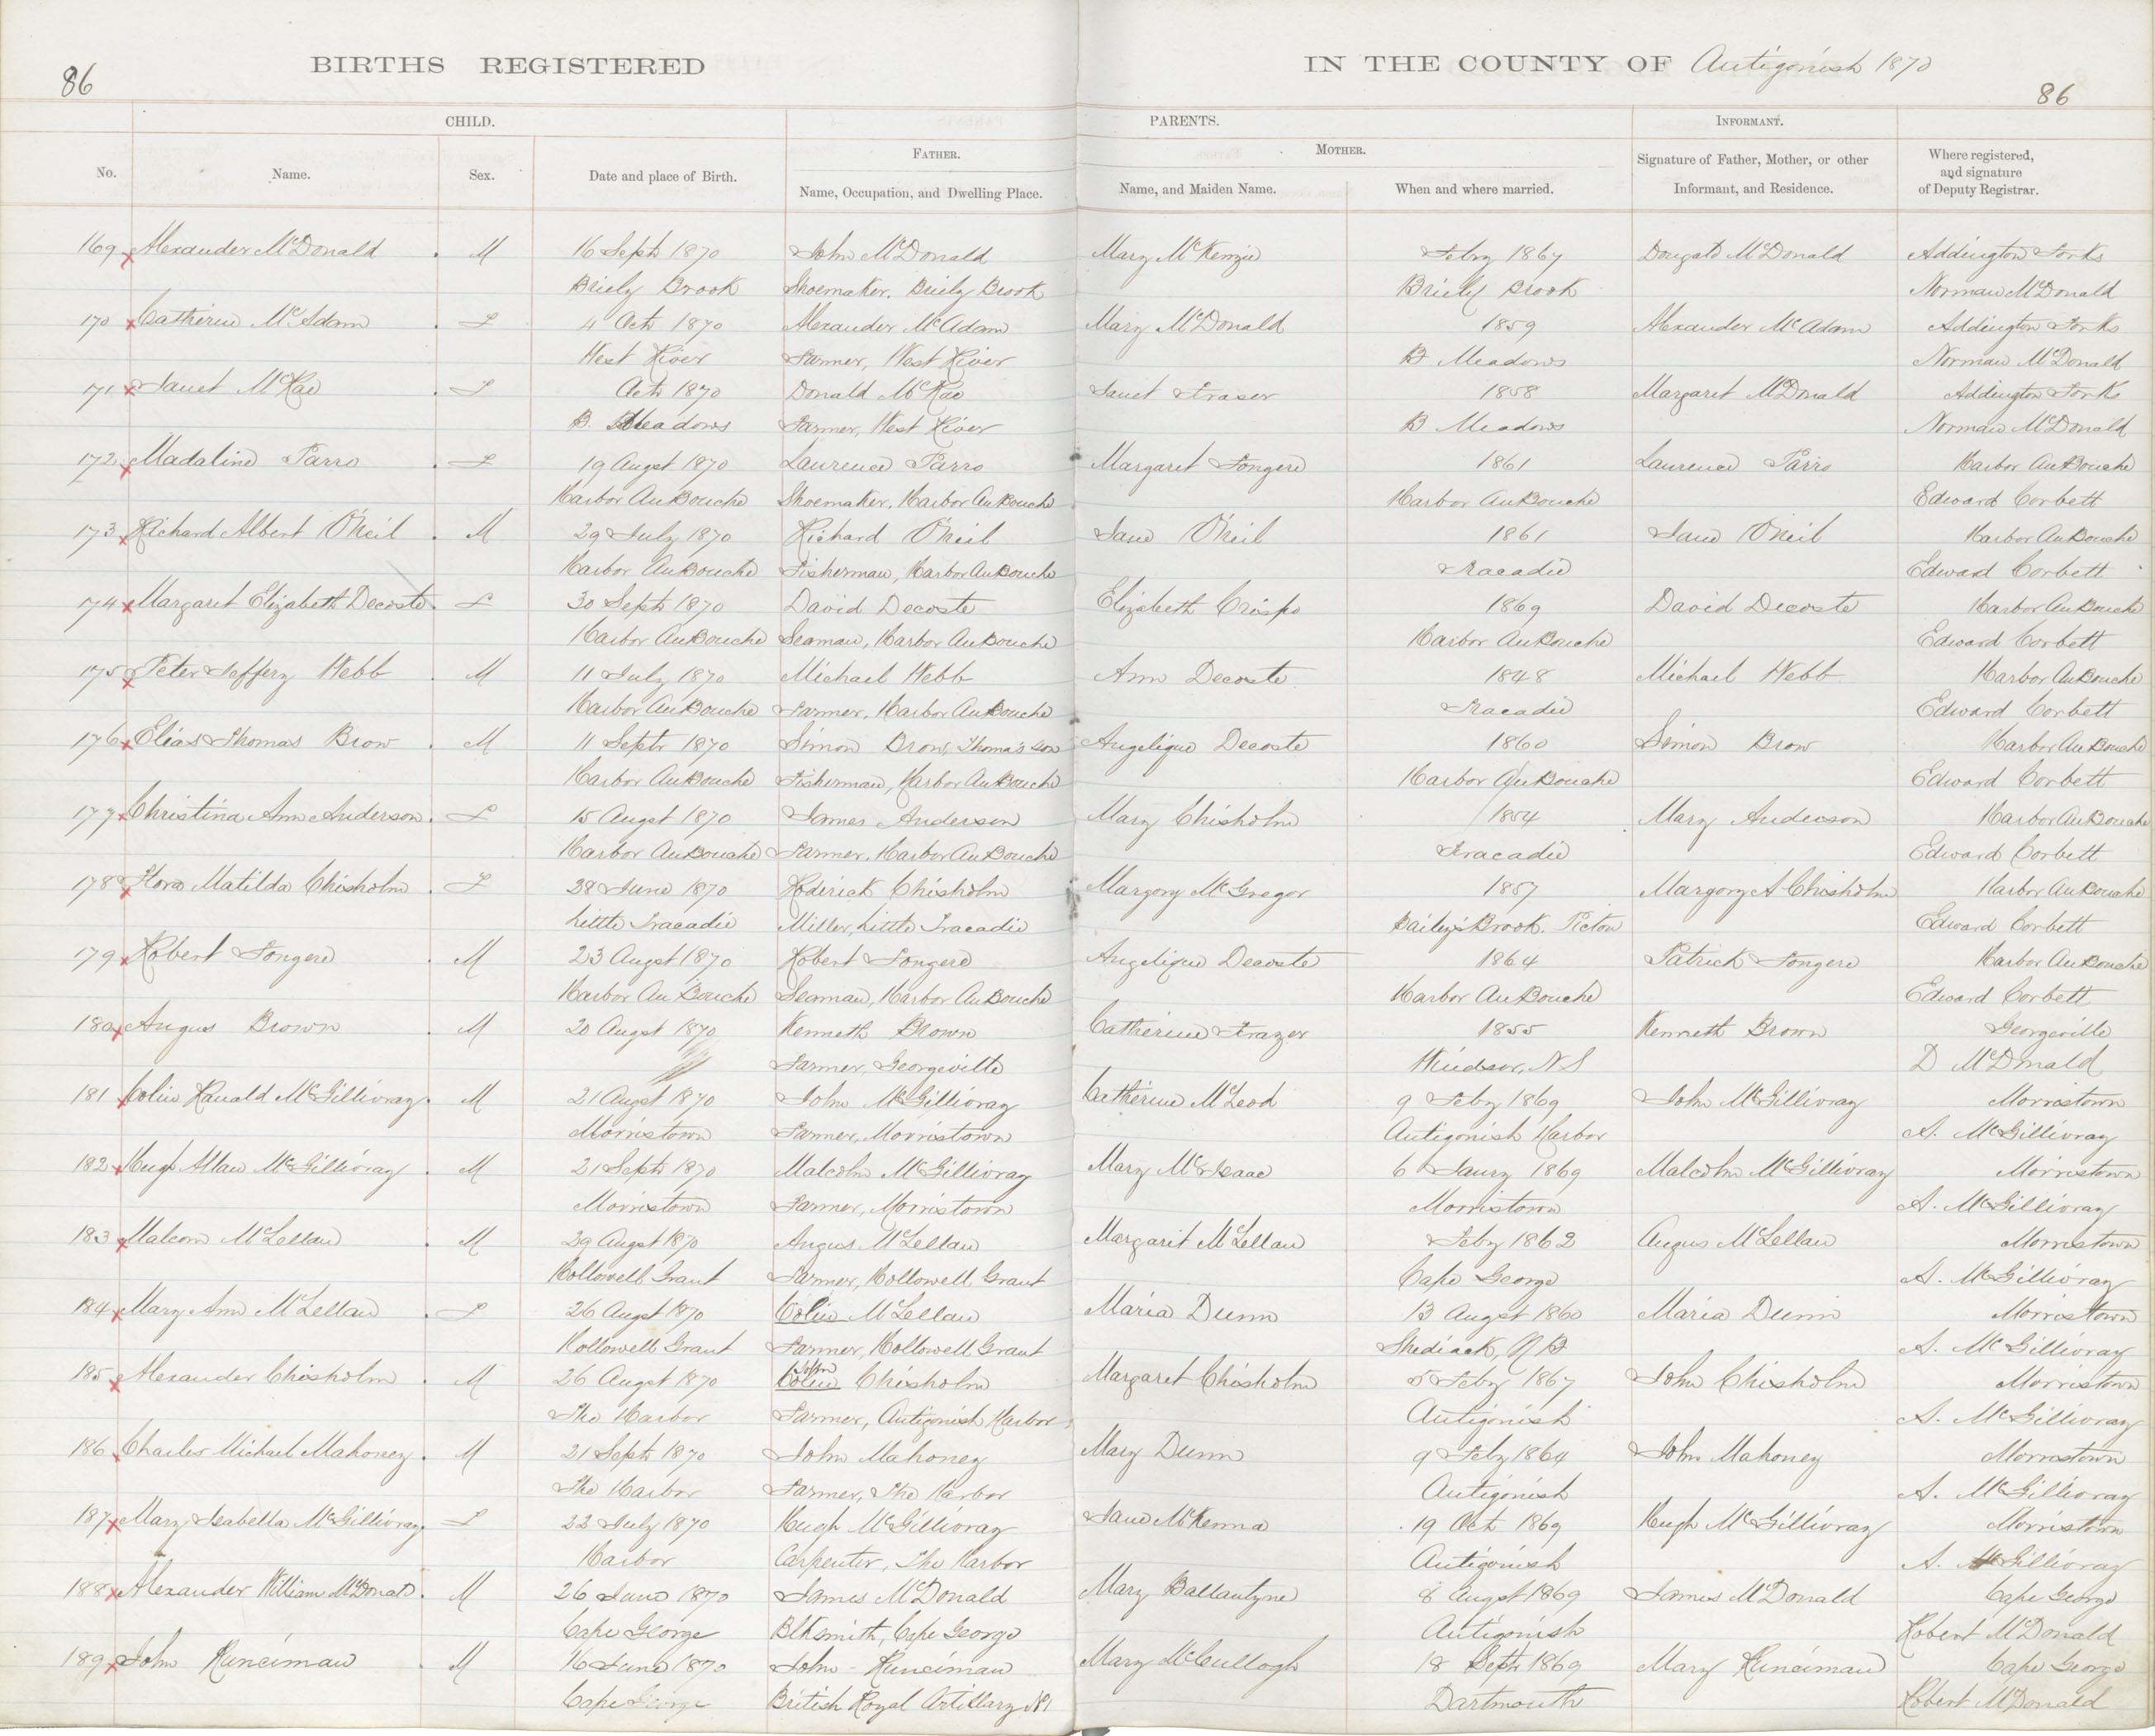 86
BIRTHS REGISTERED
IN THE COUNTY OF Antigonish 1870
86
CHILD.
PARENTS.
INFORMANT.
No.
Name.
Sex.
Date and place of Birth.
FATHER.
Name, Occupation, and Dwelling Place.
MOTHER.
Name, and Maiden Name.
When and where married.
Signature of Father, Mother, or other
Informant, and Residence.
Where registered,
and signature
of Deputy Registrar.
169 x Alexander McDonald . M 16 Septr 1870 John McDonald Mary McKenzie Feby 1867 Dougald McDonald Addington Forks
Briely Brook Shoemaker, Briely Brook Briely Brook Norman McDonald
170 x Catherine McAdam . F 4 Octr 1870 Alexander McAdam Mary McDonald 1859 Alexander McAdam Addington Forks
West River Farmer, West River B Meadows Norman McDonald
171 x Janet McRae . F Octr 1870 Donald McRae Janet Fraser 1858 Margaret McDonald Addington Forks
B. Meadows Farmer, West River B Meadows Norman McDonald
172 x Madaline Parro . F 19 Augst 1870 Laurence Parro Margaret Fongere 1861 Laurence Parro Harbor AuBouche
Harbor AuBouche Shoemaker, Harbor AuBouche Harbor AuBouche Edward Corbett
173 x Richard Albert O'Neil . M 29 July 1870 Richard O'Neil Jane O'Neil 1861 Jane O'Neil Harbor AuBouche
Harbor AuBouche Fisherman, Harbor AuBouche Tracadie Edward Corbett
174 x Margaret Elizabeth Decoste . F 30 Septr 1870 David Decoste Elizabeth Crispo 1869 David Decoste Harbor AuBouche
Harbor AuBouche Seaman, Harbor AuBouche Harbor AuBouche Edward Corbett
175 x Peter Jeffery Webb . M 11 July 1870 Michael Webb Ann Decoste 1848 Michael Webb Harbor AuBouche
Harbor AuBouche Farmer, Harbor AuBouche Tracadie Edward Corbett
176 x Elias Thomas Brow . M 11 Septr 1870 Simon Brow, Thomas son Angelique Decoste 1860 Simon Brow Harbor AuBouche
Harbor AuBouche Fisherman, Harbor AuBouche Harbor AuBouche Edward Corbett
177 x Christina Ann Anderson . F 15 Augst 1870 James Anderson Mary Chisholm 1854 Mary Anderson Harbor AuBouche
Harbor AuBouche Farmer, Harbor AuBouche Tracadie Edward Corbett
178 x Flora Matilda Chisholm . F 28 June 1870 Roderick Chisholm Margory McGregor 1857 Margory A Chisholm Harbor AuBouche
Little Tracadie Miller, Little Tracadie Bailey's Brook. Picton Edward Corbett
179 x Robert Fongere . M 23 Augst 1870 Robert Fongere Angelique Decoste 1864 Patrick Fongere Harbor AuBouche
Harbor Au Bouche Seaman, Harbor AuBouche Harbor AuBouche Edward Corbett
180 x Angus Brown . M 20 Augst 1870 Kenneth Brown Catherine Frazer 1855 Kenneth Brown Georgeville
Farmer, Georgeville Windsor, N S D McDonald
181 x Colin Ranald McGillivray . M 21 Augst 1870 John McGillivray Catherine McLeod 9 Feby 1869 John McGillivray Morristown
Morristown Farmer, Morristown Antigonish Harbor A. McGillivray
182 x Hugh Allan McGillivray . M 21 Septr 1870 Malcolm McGillivray Mary McIsaac 6 Jany 1869 Malcolm McGillivray Morristown
Morristown Farmer, Morristown Morristown A. McGillivray
183 x Malcom McLellan . M 29 Augst 1870 Angus McLellan Margarit McLellan Feby 1862 Angus McLellan Morristown
Hollowell Grant Farmer, Hollowell Grant Cape George A. McGillivray
184 x Mary Ann McLellan . F 26 Augst 1870 Colin McLellan Maria Dunn 13 Augst 1860 Maria Dunn Morristown
Hollowell Grant Farmer, Hollowell Grant Shediack, N B A. McGillivray
185 x Alexander Chisholm . M 26 Augst 1870 John Colin Chisholm Margaret Chisholm 5 Feby 1867 John Chisholm Morristown
The Harbor Farmer, Antigonish Harbor Antigonish A. McGillivray
186 x Charles Michael Mahoney . M 21 Septr 1870 John Mahoney Mary Dunn 9 Feby 1864 John Mahoney Morristown
The Harbor Farmer, The Harbor Antigonish A. McGillivray
187 x Mary Isabella McGillivray F 22 July 1870 Hugh McGillivray Jane McKenna 19 Oct 1869 Hugh McGillivray Morristown
Harbor Carpenter, The Harbor Antigonish A. McGillivray
188 x Alexander William McDonald . M 26 June 1870 James McDonald Mary Ballantyne 8 Augst 1869 James McDonald Cape George
Cape George Blksmith, Cape George Antigonish Robert McDonald
189 x John Runciman . M 16 June 1870 John Runciman Mary McCullogh 18 Septr 1869 Mary Runciman Cape George
Cape George British Royal Artillary Dartmouth Robert McDonald